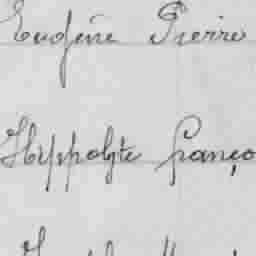 Eugène Pierre
Hyppolyte franço